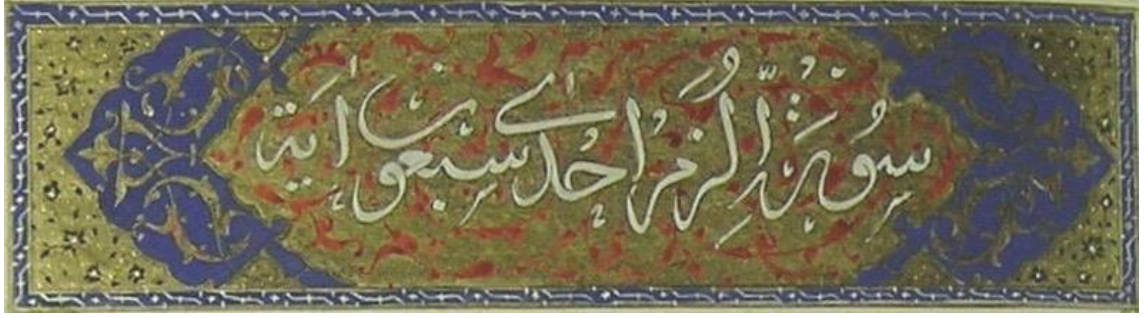 سورة الزمر احدی سبعون اية